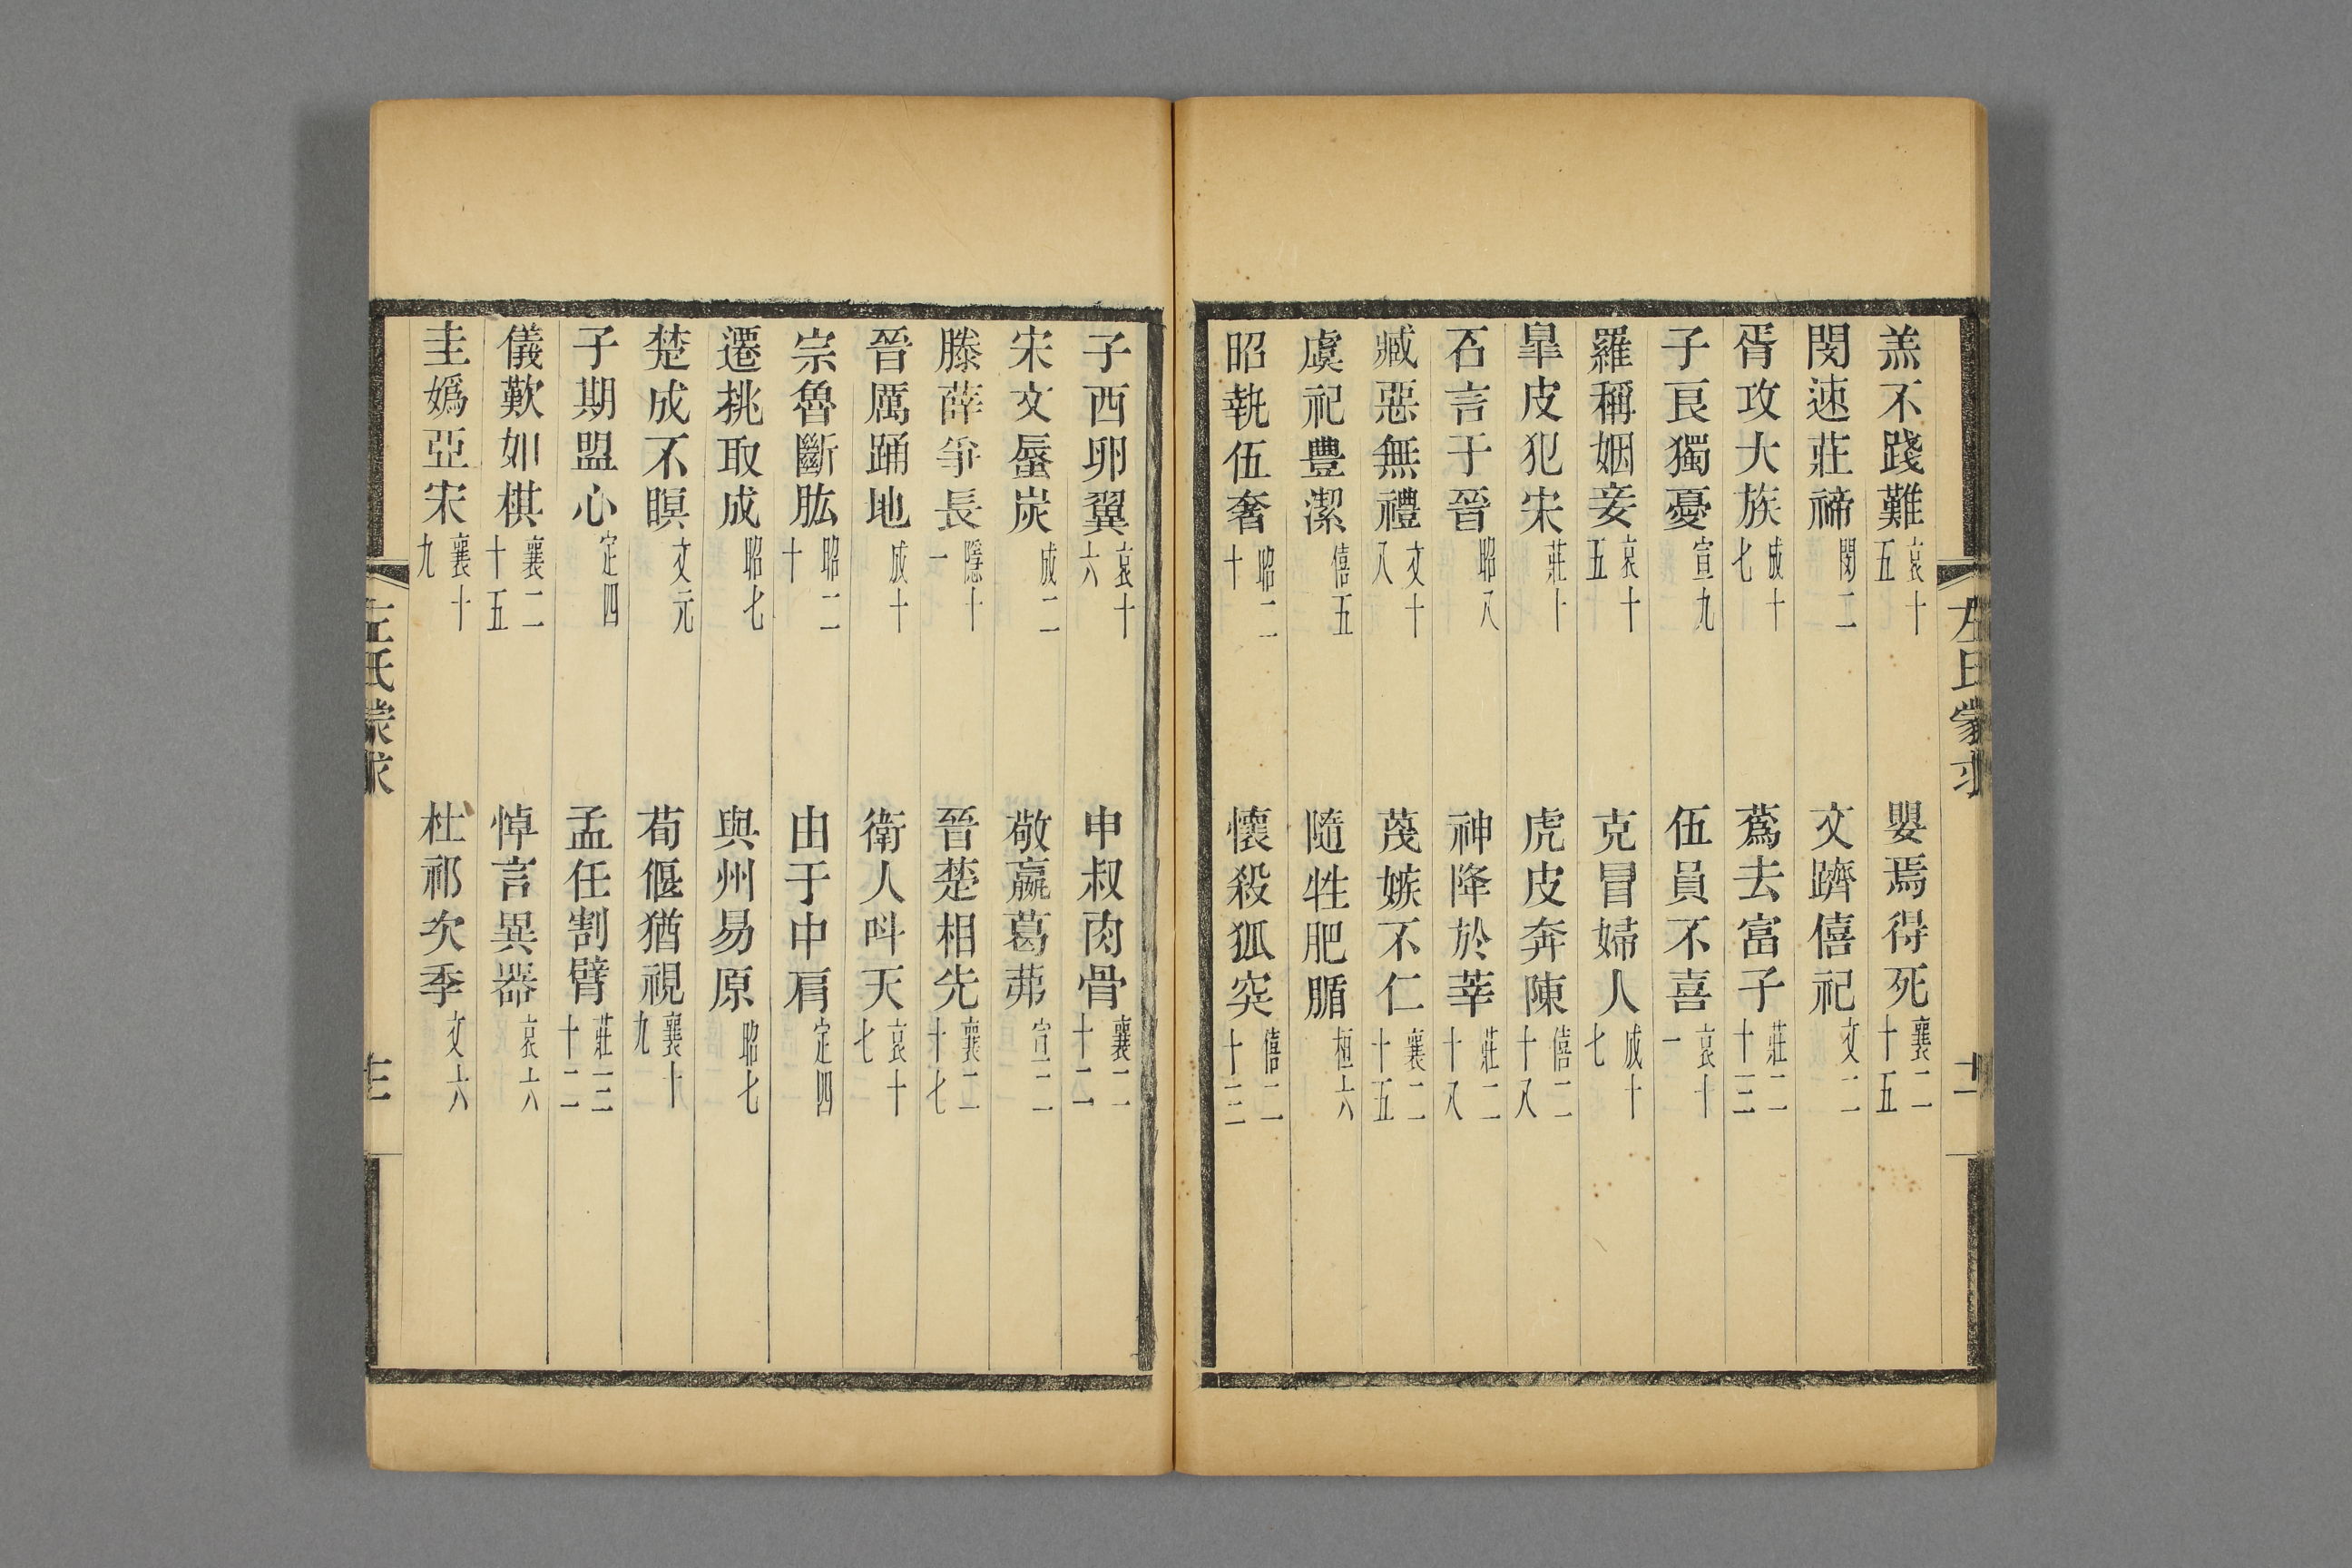 左氏蒙求
十二
羔不踐難 哀十五 嬰焉得死 襄二十五
閔速莊禘 閔二 文躋僖祀 文二
胥攻大族 成十七 蔿去富子 莊二十三
子良獨憂 宣九 伍員不喜 哀十一
羅稱姻妾 哀十五 克冒婦人 成十七
臯皮犯宋 莊十 虎皮奔陳 僖二十八
石言于晉 昭八 神降於莘 莊二十八
臧惡無禮 文十八 茂嫉不仁 襄二十五
虞祀豐潔 僖五 隨牲肥腯 桓六
昭執伍奢 昭二十 懷殺狐突 僖二十三
子西卵翼 哀十六 申叔肉骨 襄二十二
宋文蜃炭 成二 敬嬴葛茀 宣二
滕薛爭長 隱十一 晉楚相先 襄二十七
晉厲踊地 成十 衛人呌天 哀十七
宗魯斷肱 昭二十 由于中肩 定四
遷桃取成 昭七 與州易原 昭七
楚成不瞑 文元 荀偃猶視 襄十九
子期盟心 定四 孟任割臂 莊三十二
儀歎如棋 襄二十五 悼言異器 哀六
圭嬀亞宋 襄十九 杜祁次季 文六
左氏蒙求